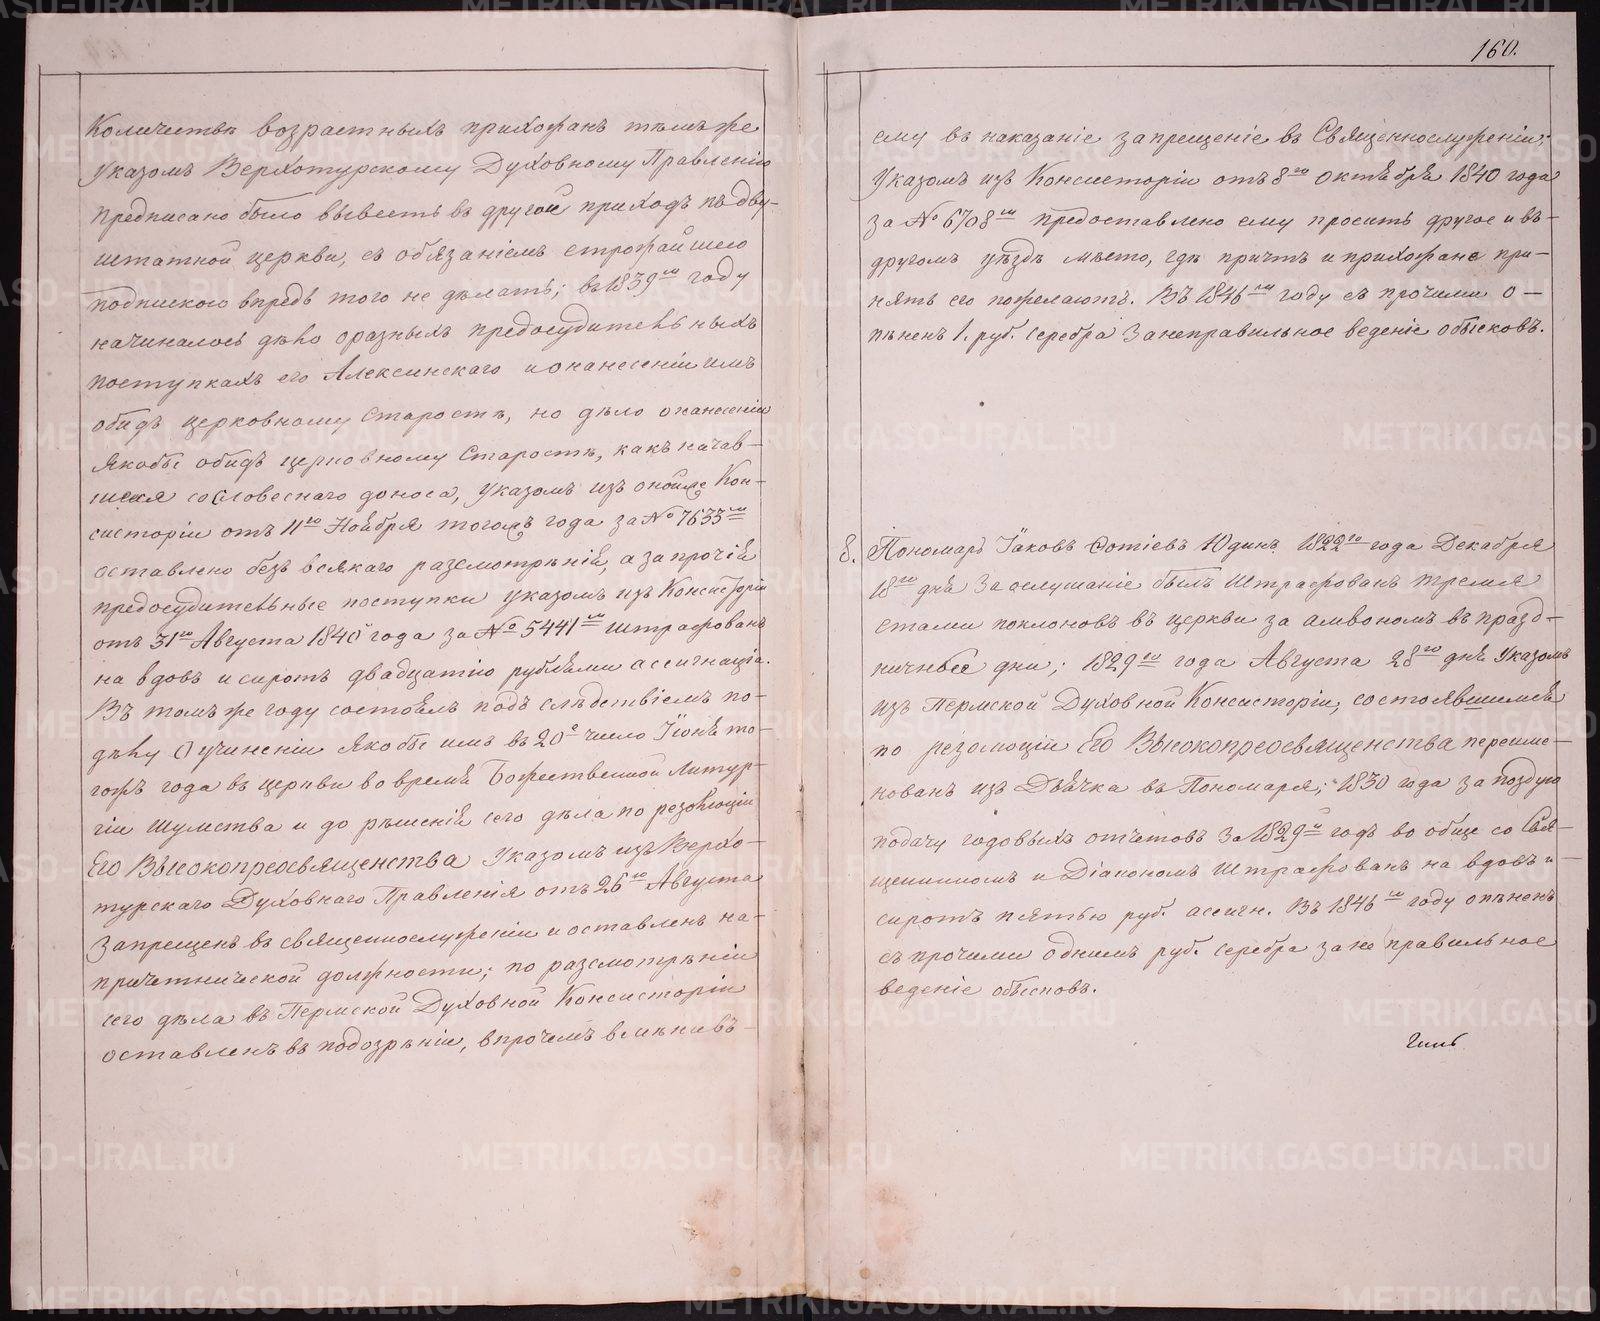 количествѣ возрастныхъ прихожанъ тѣмъ же
Указомъ Верхотурскому Духовному Правленію
предписано было вывесть въ другой приходъ къ дву-
штатной церкви, съ обязаніемъ строжайшею
подпискою впредь того не дѣлать; въ 1839мъ году
начиналось дѣло о разныхъ предосудительныхъ
поступкахъ его Алексинскаго и о нанесеніи имъ
обидъ церковному Старостѣ, но дѣло о нанесеніи
якобы обидъ церковному Старостѣ, какъ начав-
шееся со словеснаго доноса, Указомъ изъ оной же Кон-
систоріи отъ 11го Ноября того же года за № 7633мъ
оставлено безъ всякаго разсмотрѣнія, а за прочія
предосудительные поступки указомъ изъ Консисторіи
отъ 31го Августа 1840 года за № 5441мъ штрафованъ
на вдовъ и сиротъ двадцатію рублями ассигнація.
Въ томъ же году состоялъ подъ слѣдствіемъ по-
дѣлу о учиненіи якобы имъ въ 20е число Іюня то-
гожъ года въ церкви во время Божественной Литур-
гіи шумства и до рѣшенія сего дѣла по резолюціи
Его Высокопреосвященства Указомъ изъ Верхо-
турскаго Духовнаго Правленія отъ 26го Августа
запрещенъ въ священнослуженіи и оставленъ на-
причетнической должности; по разсмотрѣніи
сего дѣла въ Пермской Духовной Консисторіи
оставленъ въ подозрѣніи, впрочемъ вмѣнивъ-
160.
ему въ наказаніе запрещеніе въ Священнослуженіи;
Указомъ изъ Консисторіи отъ 8го октября 1840 года
за № 6708мъ предоставлено ему просить другое и въ-
другомъ уѣздѣ мѣсто, гдѣ причтъ и прихожане при-
нять его пожелаютъ. Въ 1846мъ году съ прочими о-
пѣненъ 1. руб. серебра за неправильное веденіе обысковъ.
8. Пономарь Іаковъ Фотіевъ Юдинъ 1822го года Декабря
18го дня За ослушаніе былъ Штрафованъ тремя
стами поклоновъ въ церкви за амвономъ въ празд-
ничные дни; 1829го года Августа 28го дня Указомъ
изъ Пермской Духовной Консисторіи, состоявшимся
по резолюціи Его Высокопреосвященства переиме-
нованъ изъ Дьячка въ Пономаря; 1830 года за позднюю
подачу годовыхъ отчетовъ за 1829й годъ во обще со Свя-
щенникомъ и Діакономъ Штрафованъ на вдовъ и-
сиротъ пятью руб. ассигн. Въ 1846мъ году опѣненъ
съ прочими однимъ руб. серебра за не правильное
веденіе обысковъ.